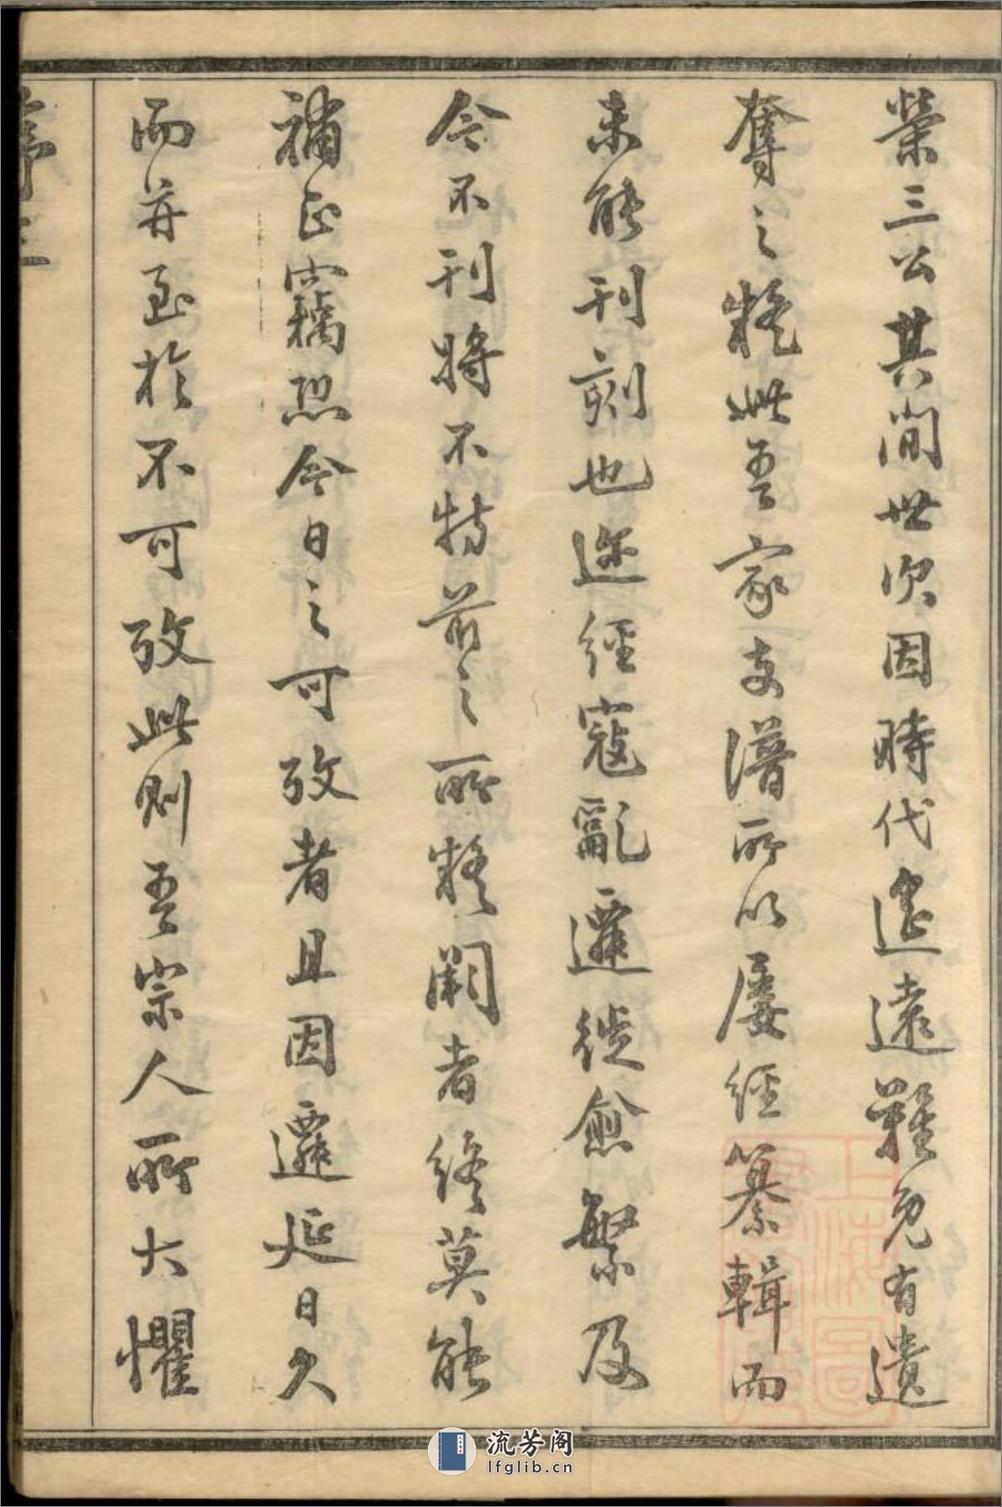 榮三公其間世次因時代遙遠難免有遺
奪之疑此吾家支譜所以屢經纂輯而
未能刊刻也迩經寇亂遷徙愈繁及
今不刊將不特前之所疑闕者終莫能
補正竊恐今日之可攷者且因遷延日久
而并至於不可攷此則吾宗人所大懼
序三
上海圖
流芳阁
lfglib.cn